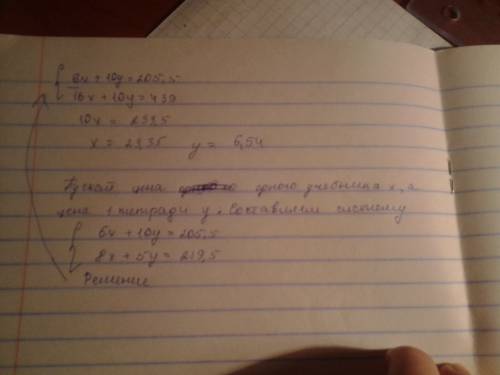 6x + 10y = 205,5
16x + 10y = 439
10x = 233,5
x = 23,35 y = 6,54
Пускай цена одного учебника x, а
цена 1 тетради y. Составляем систему
6x + 10y = 205,5
8x + 5y = 219,5
Решение